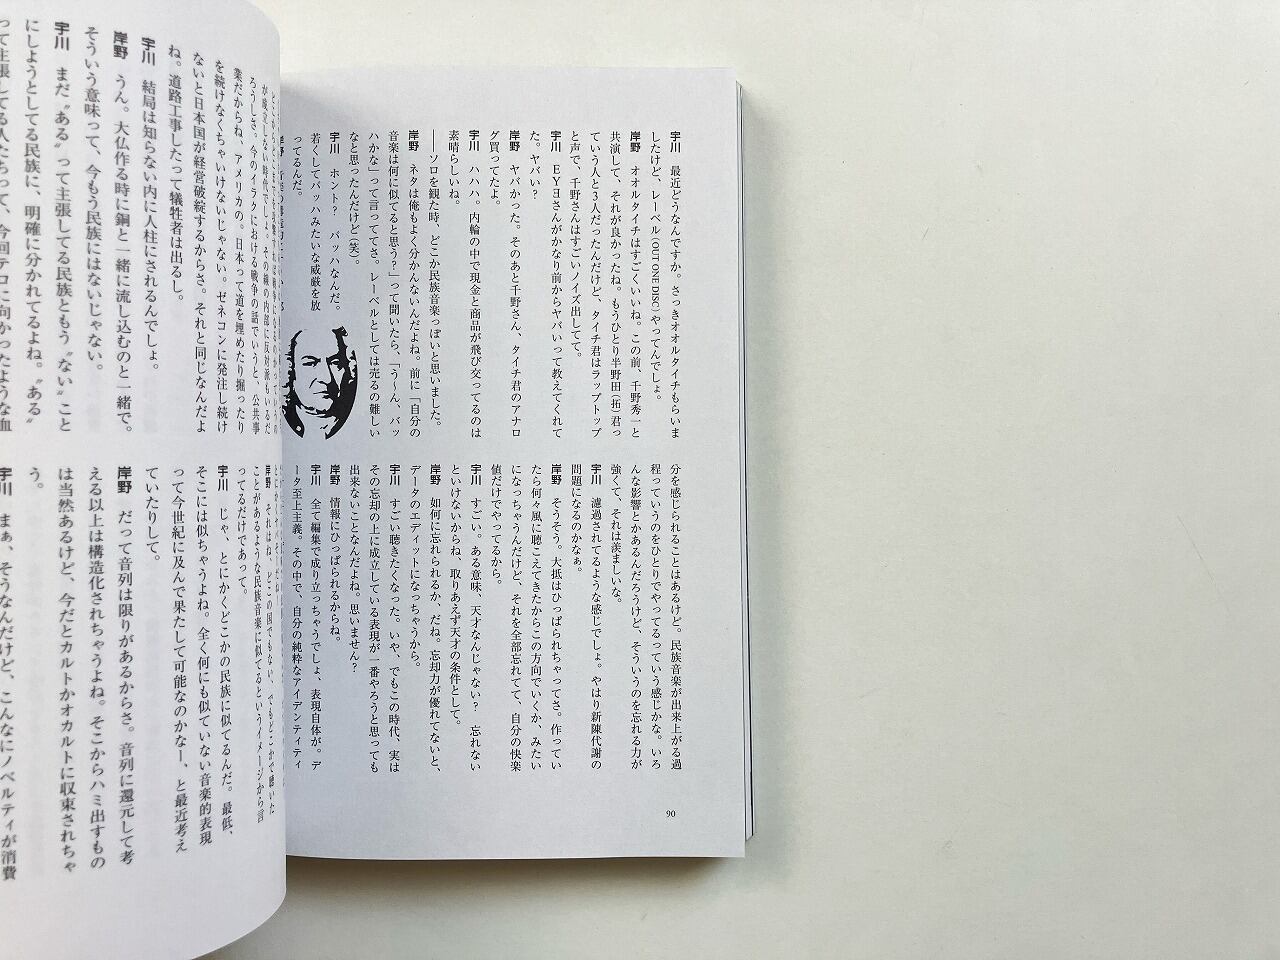 宇川　最近どうなんですか。さっきオオルタイチもらいま
したけど、レーベル(OUT ONE DISC)やってんでしょ。
岸野　オオルタイチはすごくいいね。この前、千野秀一と
共演して、それが良かったね。もうひとり半野田(拓)君っ
ていう人と3人だったんだけど、タイチ君はラップトップ
と声で、千野さんはすごいノイズ出してて。
宇川　EYヨさんがかなり前からヤバいって教えてくれて
た。ヤバい?
岸野　ヤバかった。そのあと千野さん、タイチ君のアナロ
グ買ってたよ。
宇川　ハハハ。内輪の中で現金と商品が飛び交ってるのは
素晴らしいね。
――ソロを観た時、どこか民族音楽っぽいと思いました。
岸野　ネタは俺もよく分かんないんだよね。前に「自分の
音楽は何に似てると思う?」って聞いたら、「う〜ん、バッ
ハかな」って言っててさ。レーベルとしては売るの難しい
なと思ったんだけど(笑)。
宇川　ホント?　バッハなんだ。
若くしてバッハみたいな威厳を放
ってるんだ。
分を感じられることはあるけど。民族音楽が出来上がる過
程っていうのをひとりでやってるっていう感じかな。いろ
んな影響とかあるんだろうけど、そういうのを忘れる力が
強くて、それは羨ましいな。
宇川　濾過されてるような感じでしょ。やはり新陳代謝の
問題になるのかなぁ。
岸野　そうそう。大抵はひっぱられちゃってさ。作ってい
たら何々風に聴こえてきたからこの方向でいくか、みたい
になっちゃうんだけど、それを全部忘れてて、自分の快楽
値だけでやってるから。
宇川　すごい。ある意味、天才なんじゃない?　忘れない
といけないからね、取りあえず天才の条件として。
岸野　如何に忘れられるか、だね。忘却力が優れてないと、
データのエディットになっちゃうから。
宇川　すごい聴きたくなった。いや、でもこの時代、実は
その忘却の上に成立している表現が一番やろうと思っても
出来ないことなんだよね。思いません?
岸野　情報にひっぱられるからね。
宇川　全て編集で成り立っちゃうでしょ、表現自体が。デ
ータ至上主義。その中で、自分の純粋なアイデンティティ
90
が成立しない時代でしょ。その線の内部に反対派もいるだ
ろうしさ。今のイラクにおける戦争の話でいうと、公共事
業だからね、アメリカの。日本って道を埋めたり掘ったり
を続けなくちゃいけないじゃない。ゼネコンに発注し続け
ないと日本国が経営破綻するからさ。それと同じなんだよ
ね。道路工事したって犠牲者は出るし。
宇川　結局は知らない内に人柱にされるんでしょ。
岸野　うん。大仏作る時に銅と一緒に流し込むのと一緒で。
そういう意味って、今もう民族にはないじゃない。
宇川　まだ〝ある〟って主張してる民族ともう〝ない〟こと
にしようとしてる民族に、明確に分かれてるよね。〝ある〟
って主張してる人たちって、今回テロに向かったような血
岸野　それはね、どこの国でもない、でもどこかで聴いた
ことがあるような民族音楽に似てるというイメージから言
ってるだけであって。
宇川　じゃ、とにかくどこかの民族に似てるんだ。最低、
そこには似ちゃうよね。全く何にも似ていない音楽的表現
って今世紀に及んで果たして可能なのかなー、と最近考え
ていたりして。
岸野　だって音列は限りがあるからさ。音列に還元して考
える以上は構造化されちゃうよね。そこからハミ出すもの
は当然あるけど、今だとカルトかオカルトに収束されちゃ
う。
宇川　まぁ、そうなんだけど、こんなにノベルティが消費